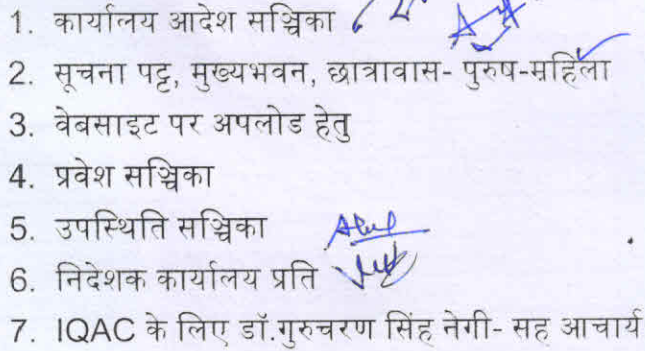 1. कार्यालय आदेश सञ्चिका
2. सूचना पट्ट, मुख्यभवन, छात्रावास- पुरुष-महिला
3. वेबसाइट पर अपलोड हेतु
4. प्रवेश सञ्चिका
5. उपस्थिति सञ्चिका
6. निदेशक कार्यालय प्रति
7. IQAC के लिए डॉ.गुरुचरण सिंह नेगी- सह आचार्य